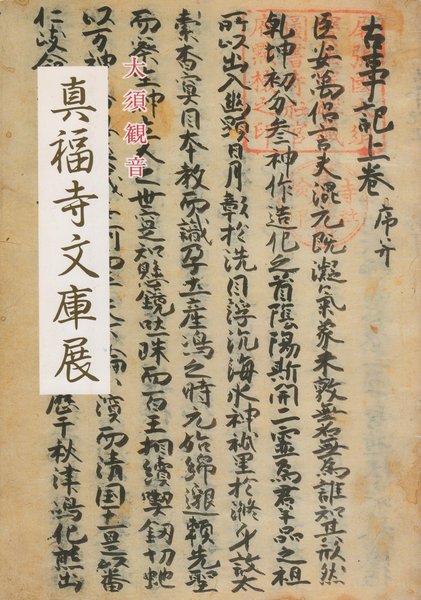 古事記上卷 序并
臣安萬侶言夫混元既凝氣象未敦無名無為誰知其形然
乾坤初分叅神作造化之首陰陽斯開二靈為群品之祖
所以出入幽顯日月彰於洗目浮沉海水神祇呈於滌身故太
素杳冥因本教而識孕土産嶋之時元始綿邈頼先聖
而察生神立人之世寔知懸鏡吐珠而百王相續喫釼切蛇
以万神 而清国土是以番
仁岐命 歷于秋津嶋化熊出
大須観音
真福寺文庫展